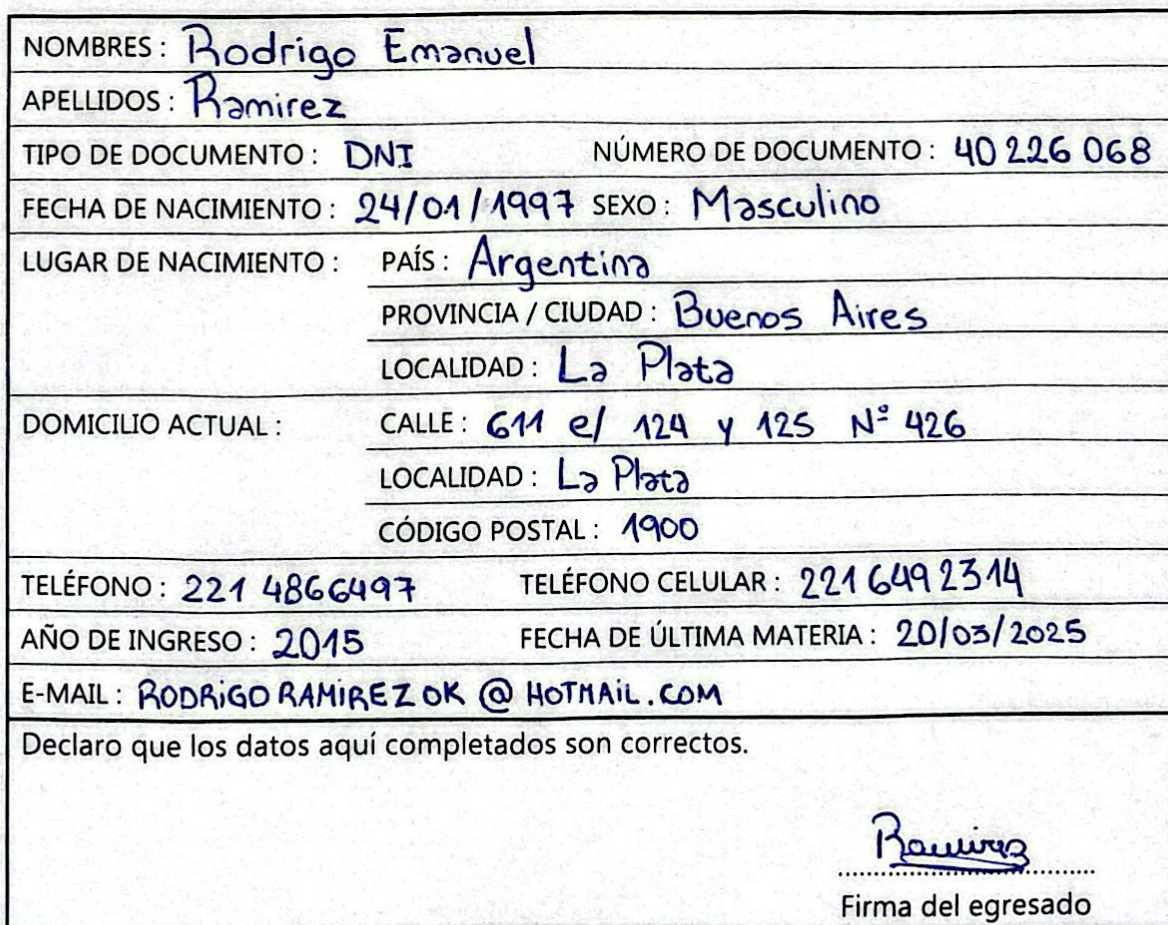 NOMBRES : Rodrigo Emanuel
APELLIDOS : Ramirez
TIPO DE DOCUMENTO : DNI NÚMERO DE DOCUMENTO : 40 226 068
FECHA DE NACIMIENTO : 24/01/1997 SEXO : Masculino
LUGAR DE NACIMIENTO : PAÍS : Argentina
PROVINCIA / CIUDAD : Buenos Aires
LOCALIDAD : La Plata
DOMICILIO ACTUAL : CALLE : 611 e/ 124 y 125 Nº 426
LOCALIDAD : La Plata
CÓDIGO POSTAL : 1900
TELÉFONO : 221 4866497 TELÉFONO CELULAR : 221 6492314
AÑO DE INGRESO : 2015 FECHA DE ÚLTIMA MATERIA : 20/03/2025
E-MAIL : RODRiGO RAMIREZ OK @ HOTMAiL.COM
Declaro que los datos aquí completados son correctos.
Ramirez
Firma del egresado